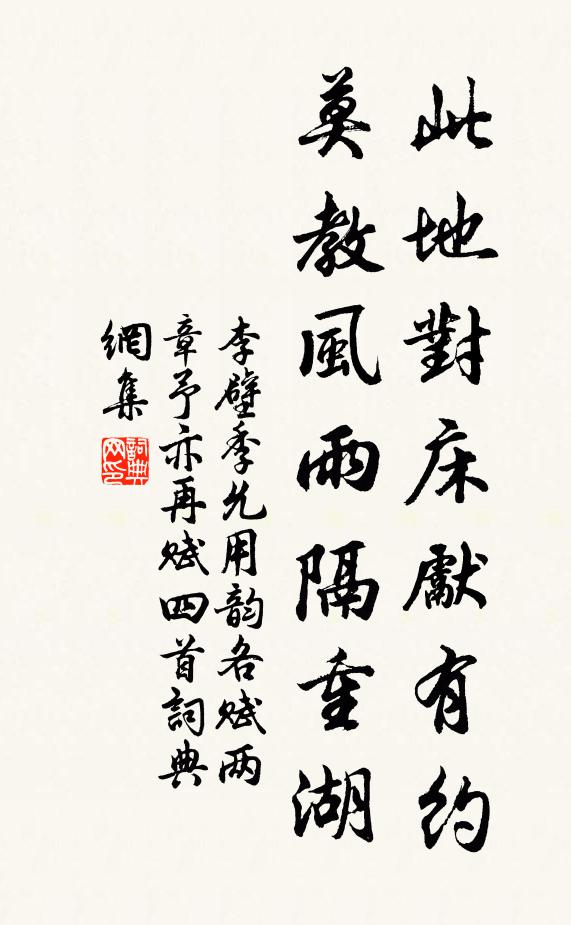 此地對床獻有約
莫教風雨隔重湖
李壁季允用韵各赋两
章予亦再赋四首詞典
網集
詞典網印